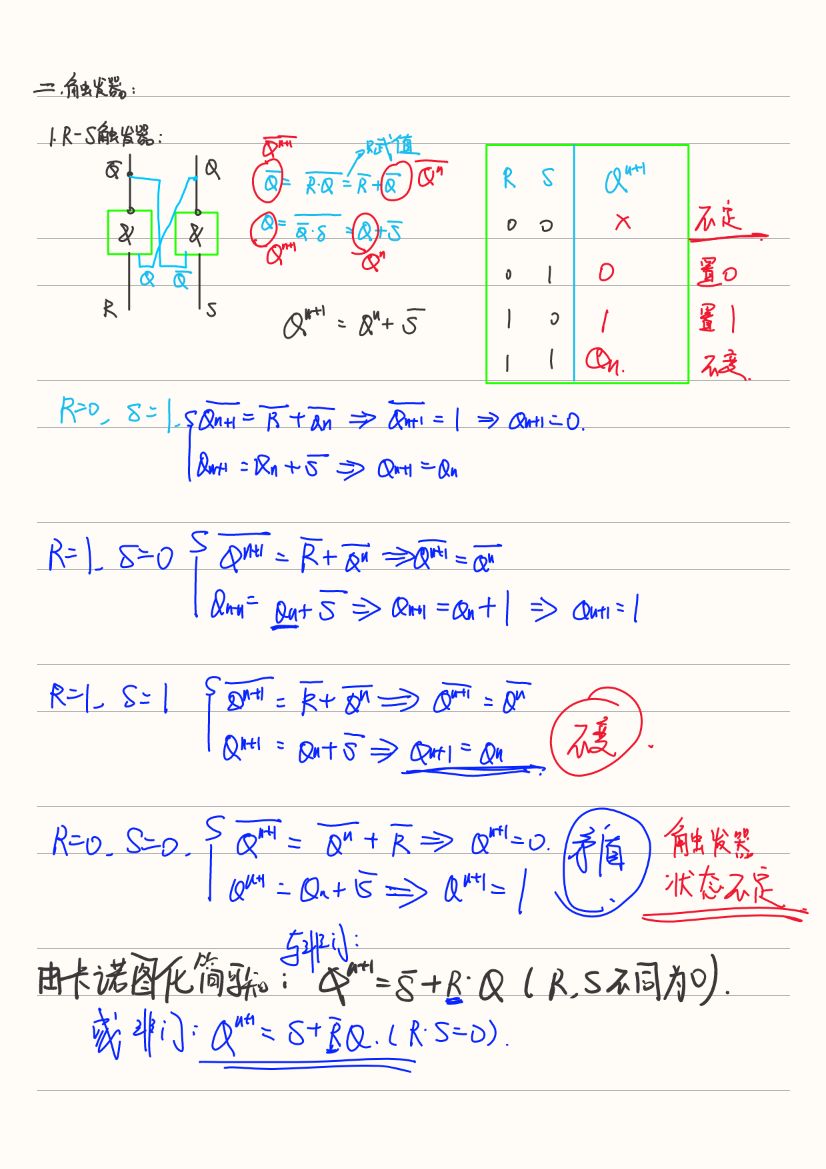 二.触发器:
1.R-S触发器:
Q̅ Q
& &
Q Q̅
R S
Q̅ⁿ⁺¹ R式值
Q̅ = \overline{R·Q} = R̅+Q̅ Q̅ⁿ
Q = \overline{Q̅·S} = Q+S̅
Qⁿ⁺¹ Qⁿ
Qⁿ⁺¹ = Qⁿ+S̅
R S Qⁿ⁺¹
0 0 × 不定
0 1 0 置0
1 0 1 置1
1 1 Qn. 不变.
R=0、S=1、{ \overline{Qn+1} = R̅+\overline{Qn} ⇒ \overline{Qn+1} = 1 ⇒ Qn+1=0.
Qn+1 = Qn+S̅ ⇒ Qn+1=Qn
R=1、S=0 { \overline{Qⁿ⁺¹} = R̅+\overline{Qⁿ} ⇒ \overline{Qⁿ⁺¹} = \overline{Qⁿ}
Qn+n = Qn+S̅ ⇒ Qn+1=Qn+1 ⇒ Qn+1=1
R=1、S=1 { \overline{Qⁿ⁺¹} = R̅+\overline{Qⁿ} ⇒ \overline{Qⁿ⁺¹} = \overline{Qⁿ}
Qⁿ⁺¹ = Qn+S̅ ⇒ Qn+1=Qn 不变.
R=0、S=0、{ \overline{Qⁿ⁺¹} = \overline{Qⁿ}+R̅ ⇒ Qⁿ⁺¹=0. 矛盾. 触发器
Qⁿ⁺¹ = Qn+S̅ ⇒ Qⁿ⁺¹=1 状态不定.
与非门:
由卡诺图化简可知: Qⁿ⁺¹=S̅+R·Q (R,S不同为0).
或非门: Qⁿ⁺¹ = S+R̅Q. (R·S=0).